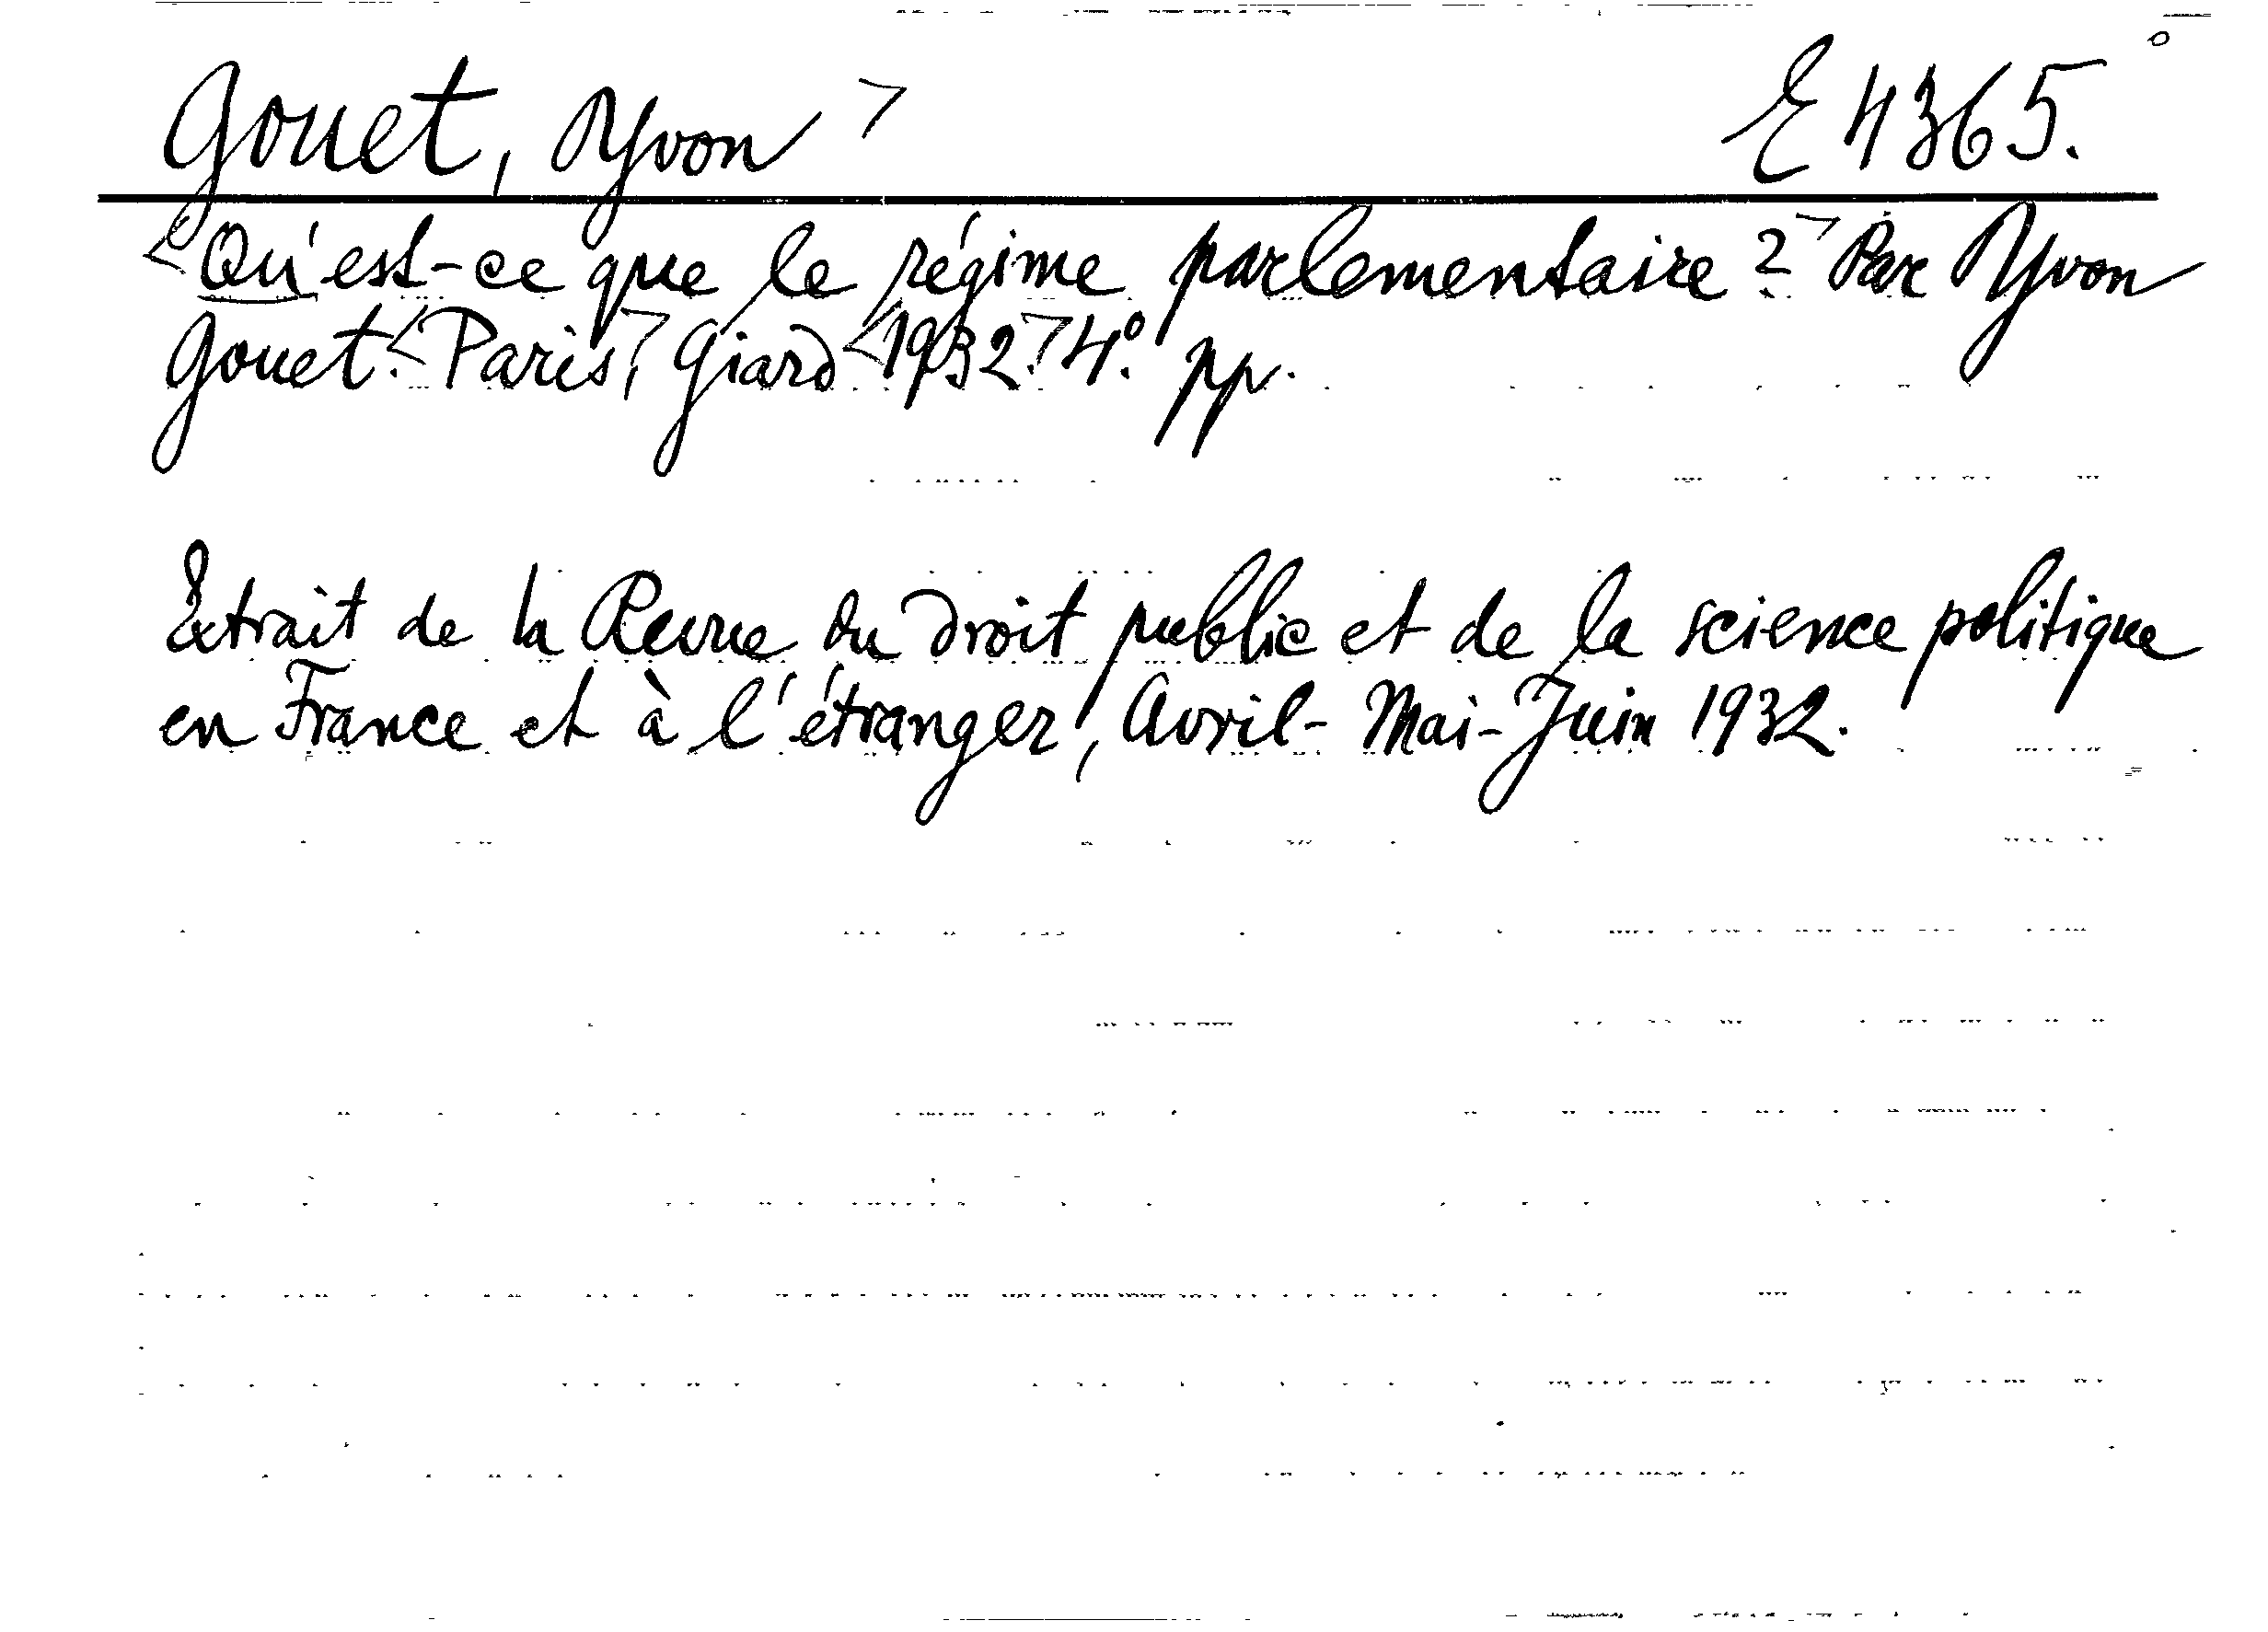 Gouet, Yvon > E 4365.
<Qu'est-ce que le régime parlementaire?> Par Yvon
Gouet. <Paris,> Giard <1932.> 4°. pp.
Extrait de la Revue du droit public et de la science politique
en France et à l'étranger, Avril-Mai-Juin 1932.